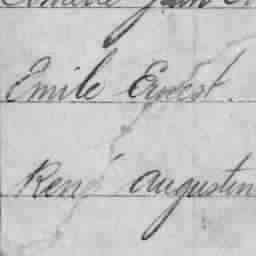 Emile Ernest.
René Augustin